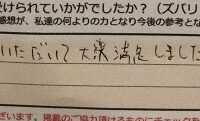 受けられていかがでしたか?(ズバリ
感想が、私達の何よりの力となり今後の参考とな
いただいて大変満足しました
ざいます。掲載のご協力頂けるものにチェックを